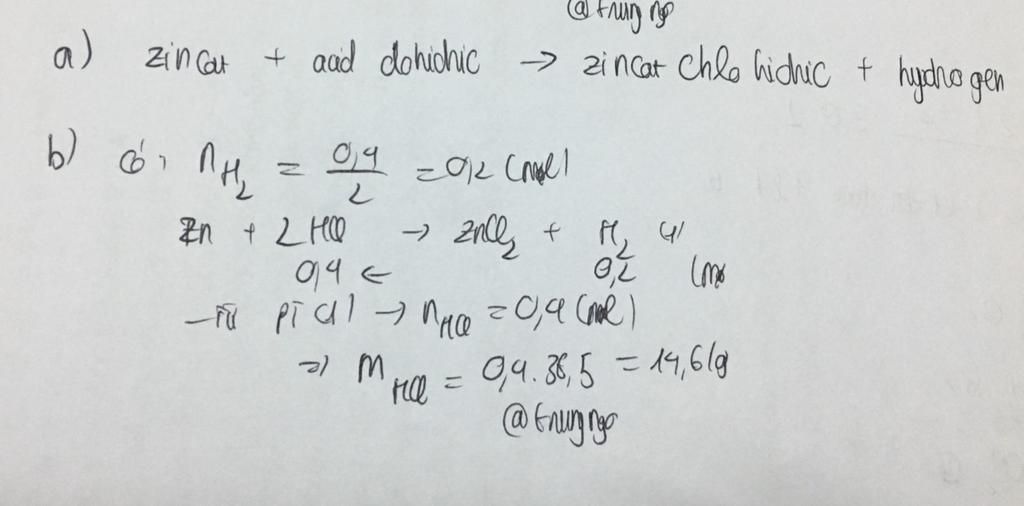 @trungngo
a) zincat + acid clohidric → zincat chlo hidric + hydrogen
b) Có: nH₂ = 0,4/2 = 0,2 (mol)
Zn + 2HCl → ZnCl₂ + H₂ (1)
0,4 ← 0,2 (mo
Từ PT (1) → nHCl = 0,4 (mol)
=> mHCl = 0,4.36,5 = 14,6(g
@trungngo